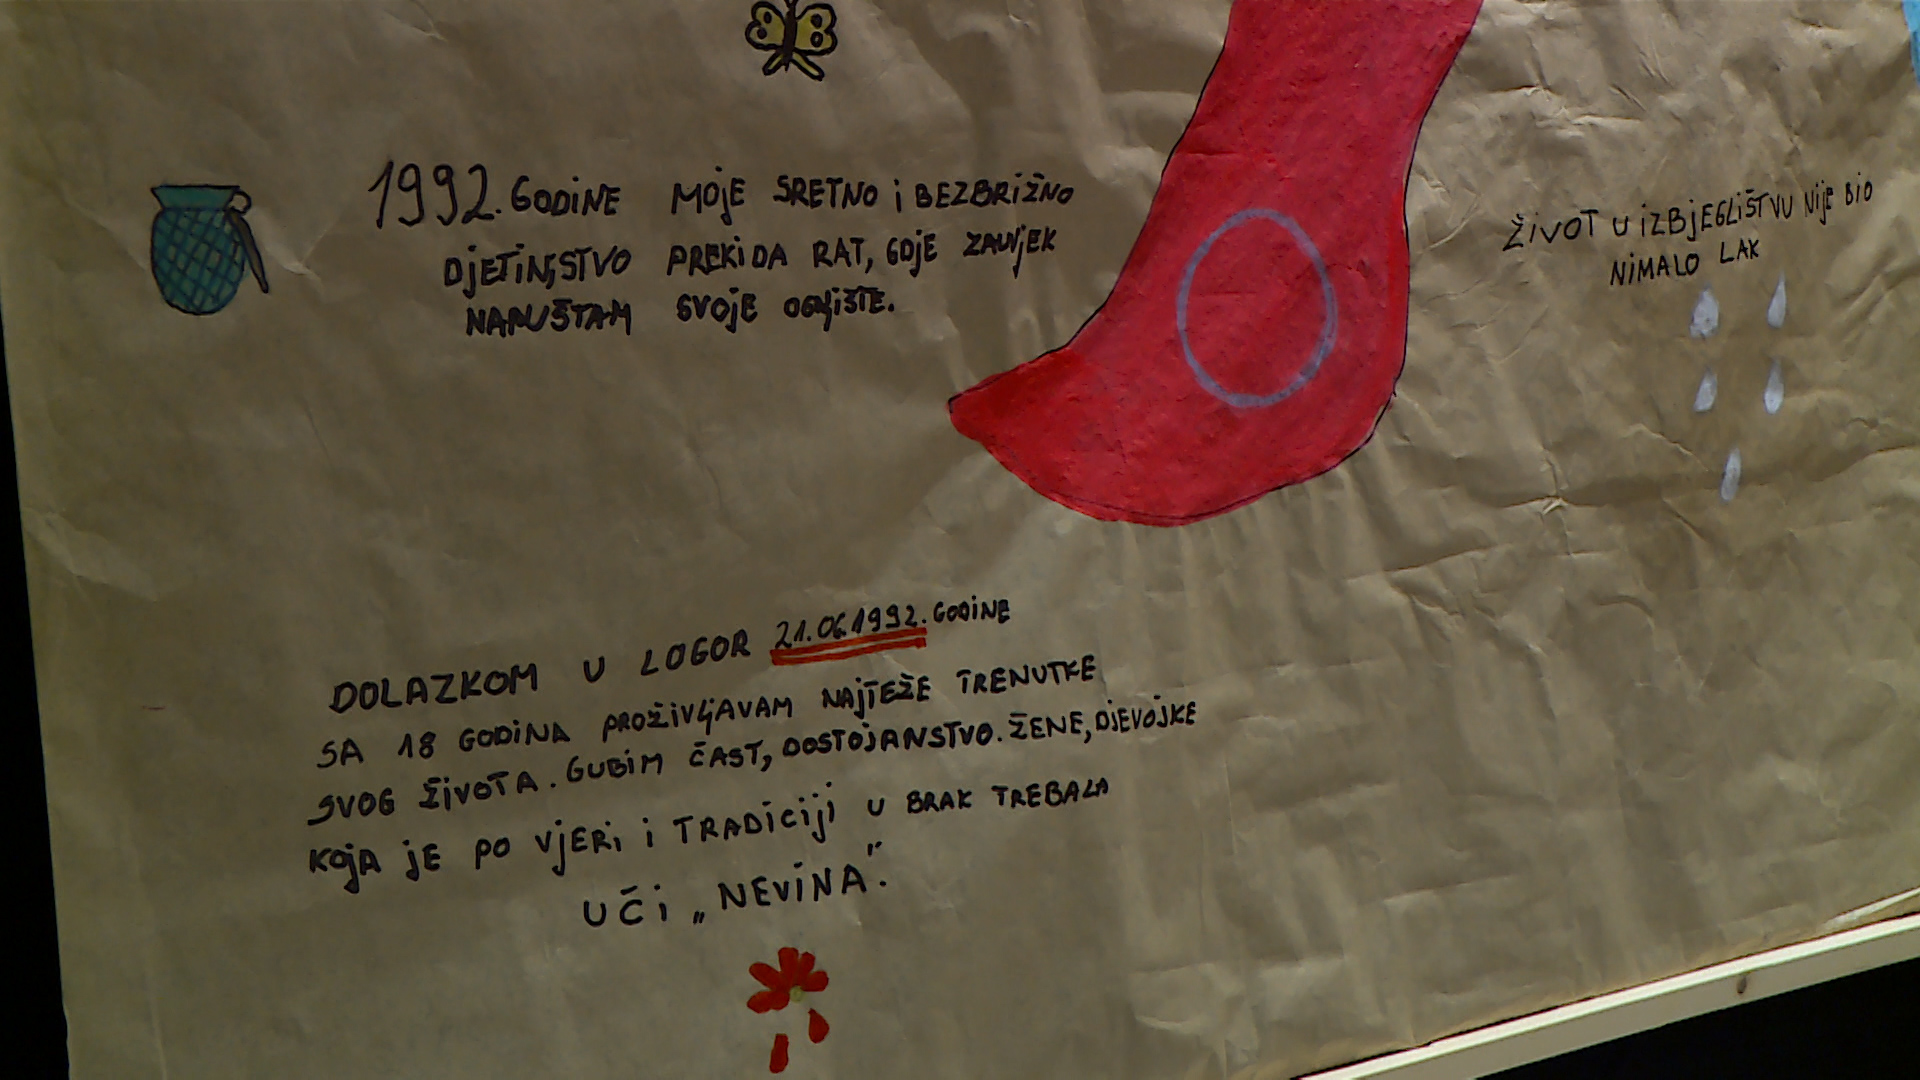 1992. GODINE MOJE SRETNO i BEZBRIŽNO
DJETINJSTVO PREKIDA RAT, GDJE ZAUVJEK
NAPUŠTAM SVOJE OGNJIŠTE.
ŽIVOT U IZBJEGLIŠTVU NIJE BIO
NIMALO LAK
DOLAZKOM U LOGOR 21.06.1992. GODINE
SA 18 GODINA PROŽIVLJAVAM NAJTEŽE TRENUTKE
SVOG ŽIVOTA. GUBIM ČAST, DOSTOJANSTVO. ŽENE, DJEVOJKE
KOJA JE PO VJERI I TRADICIJI U BRAK TREBALA
UČI „NEVINA".